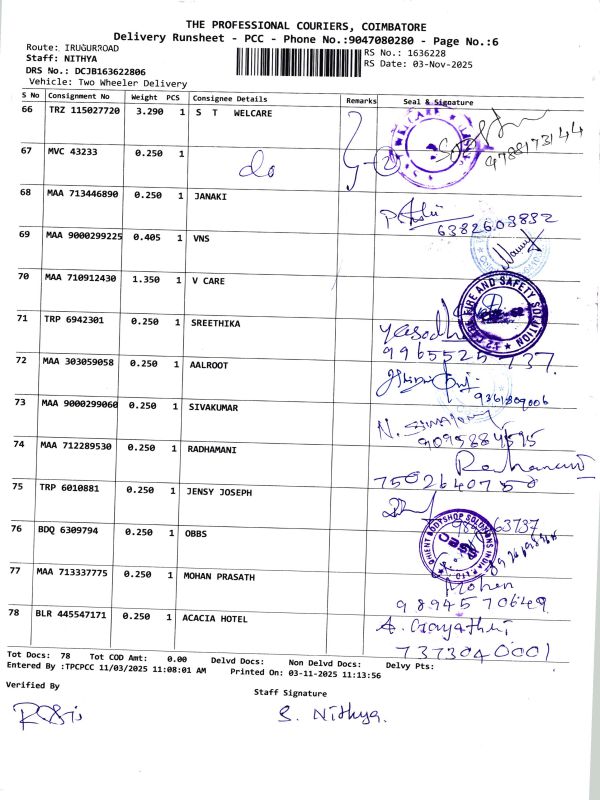 THE PROFESSIONAL COURIERS, COIMBATORE
Delivery Runsheet - PCC - Phone No.:9047080280 - Page No.:6
Route: IRUGURROAD
RS No.: 1636228
Staff: NITHYA
RS Date: 03-Nov-2025
DRS No.: DCJB163622806
Vehicle: Two Wheeler Delivery
S No Consignment No Weight PCS Consignee Details Remarks Seal & Signature
66 TRZ 115027720 3.290 1 S T WELCARE
9788173144
67 MVC 43233 0.250 1 do 2
68 MAA 713446890 0.250 1 JANAKI
6382603832
69 MAA 9000299225 0.405 1 VNS
70 MAA 710912430 1.350 1 V CARE
FIRE AND SAFETY SOLUTION
71 TRP 6942301 0.250 1 SREETHIKA
Yasodha
9965525737.
72 MAA 303059058 0.250 1 AALROOT
9361809006
73 MAA 9000299060 0.250 1 SIVAKUMAR
9095884595
74 MAA 712289530 0.250 1 RADHAMANI
Radhamani
7502640750
75 TRP 6010881 0.250 1 JENSY JOSEPH
76 BDQ 6309794 0.250 1 OBBS
ORIENT BODYSHOP SOLUTIONS INDIA
OBBS
77 MAA 713337775 0.250 1 MOHAN PRASATH
Mohen
9894570649
78 BLR 445547171 0.250 1 ACACIA HOTEL
A. Gayathri
7373040001
Tot Docs: 78 Tot COD Amt: 0.00 Delvd Docs: Non Delvd Docs: Delvy Pts:
Entered By :TPCPCC 11/03/2025 11:08:01 AM Printed On: 03-11-2025 11:13:56
Verified By
Staff Signature
S. Nithya.